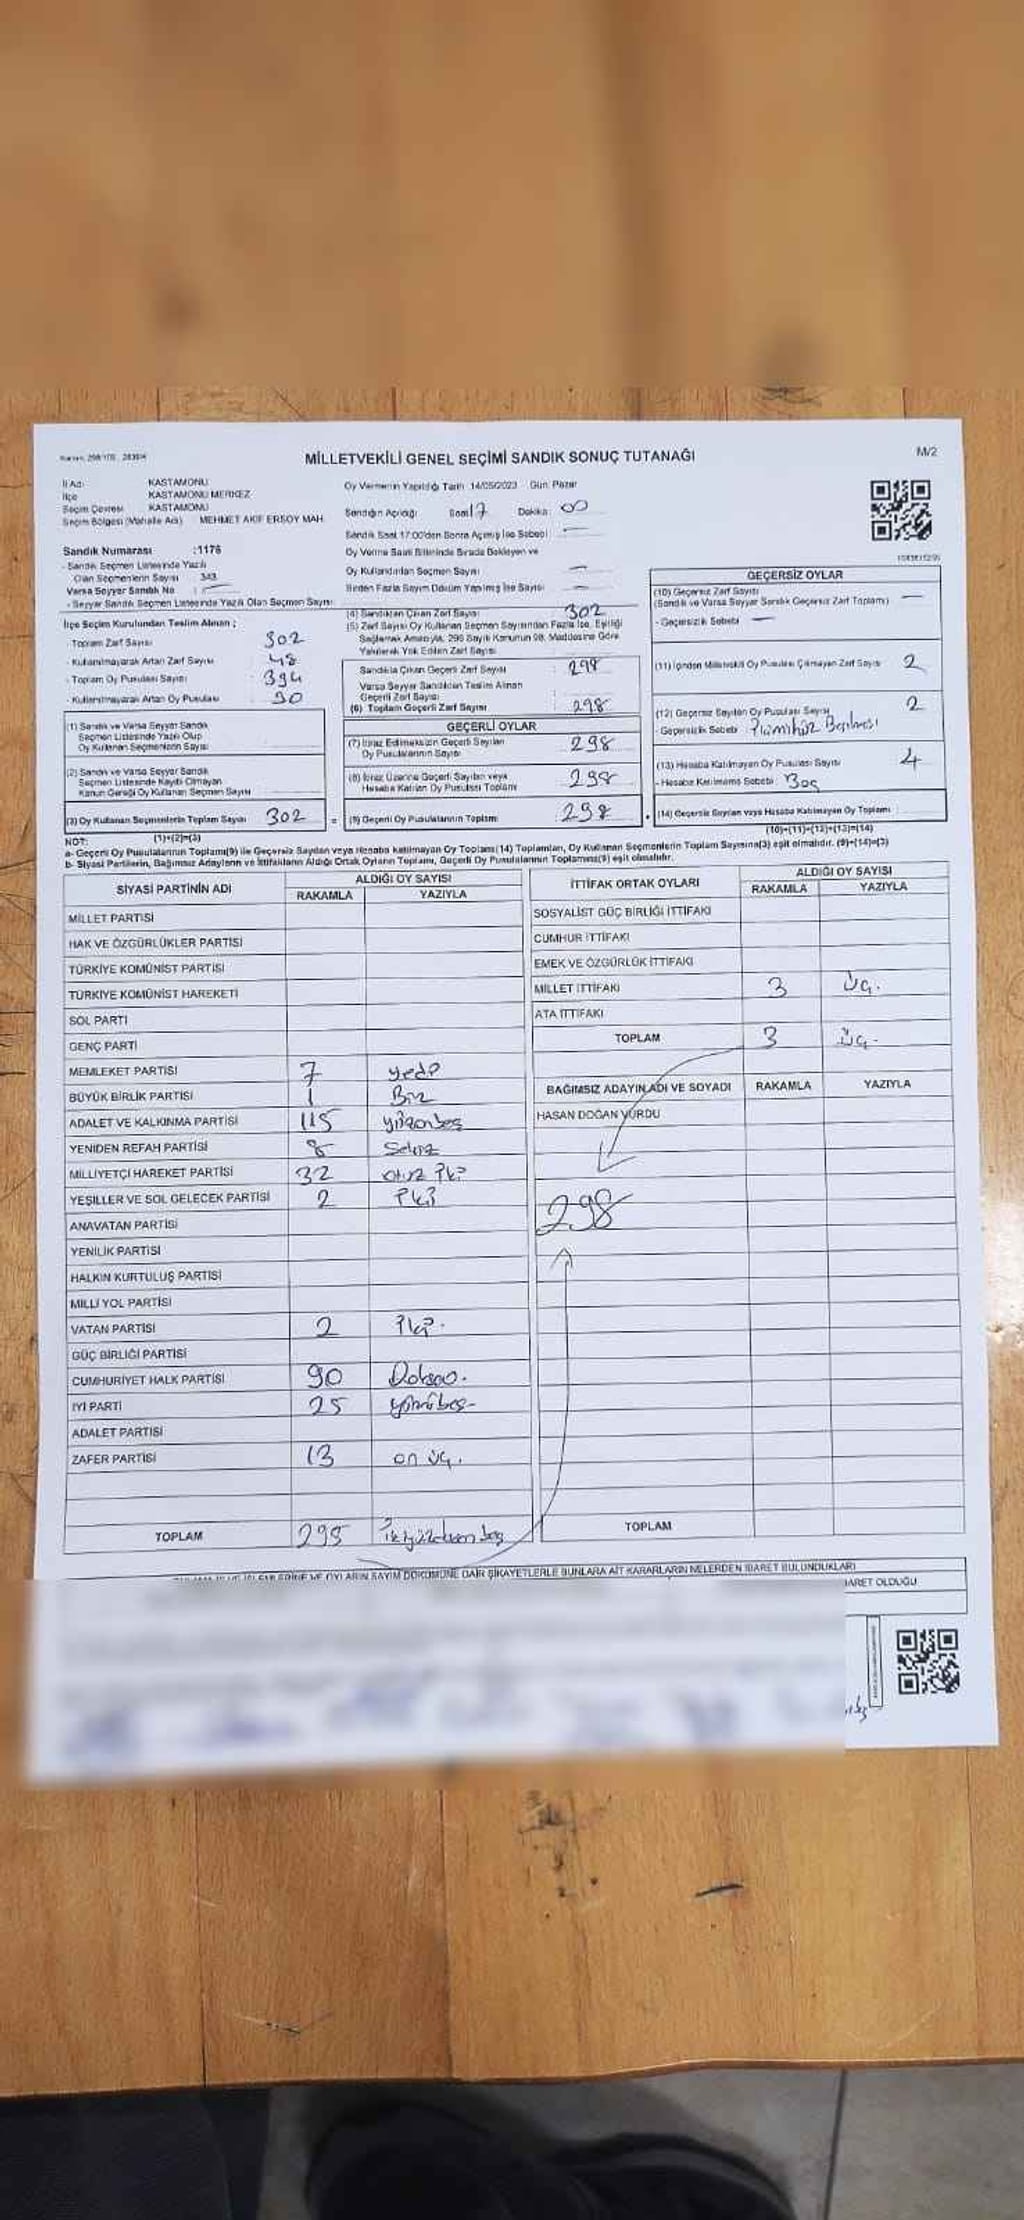 MİLLETVEKİLİ GENEL SEÇİMİ SANDIK SONUÇ TUTANAĞI
M/2
İl Adı KASTAMONU
İlçe KASTAMONU MERKEZ
Seçim Çevresi KASTAMONU
Seçim Bölgesi (Mahalle Adı) MEHMET AKİF ERSOY MAH.
Sandık Numarası :1176
- Sandık Seçmen Listesinde Yazılı
Olan Seçmenlerin Sayısı 343
Varsa Seyyar Sandık No
- Seyyar Sandık Seçmen Listesinde Yazılı Olan Seçmen Sayısı
Oy Vermenin Yapıldığı Tarih 14/05/2023 Gün: Pazar
Sandığın Açıldığı Saat 17 Dakika: 00
Sandık Saat 17:00'den Sonra Açılmış İse Sebebi
Oy Verme Saati Bitiminde Sırada Bekleyen ve
Oy Kullandırılan Seçmen Sayısı
Birden Fazla Sayım Döküm Yapılmış İse Sayısı
İlçe Seçim Kurulundan Teslim Alınan ;
- Toplam Zarf Sayısı 302
- Kullanılmayarak Artan Zarf Sayısı 48
- Toplam Oy Pusulası Sayısı 394
- Kullanılmayarak Artan Oy Pusulası 30
(1) Sandık ve Varsa Seyyar Sandık
Seçmen Listesinde Yazılı Olup
Oy Kullanan Seçmenlerin Sayısı
(2) Sandık ve Varsa Seyyar Sandık
Seçmen Listesinde Kayıtlı Olmayan
Kanun Gereği Oy Kullanan Seçmen Sayısı
(3) Oy Kullanan Seçmenlerin Toplam Sayısı 302
(1)+(2)=(3)
(4) Sandıktan Çıkan Zarf Sayısı 302
(5) Zarf Sayısı Oy Kullanan Seçmen Sayısından Fazla İse, Eşitliği
Sağlamak Amacıyla, 298 Sayılı Kanunun 98. Maddesine Göre
Yakılarak Yok Edilen Zarf Sayısı
Sandıkta Çıkan Geçerli Zarf Sayısı : 298
Varsa Seyyar Sandıktan Teslim Alınan
Geçerli Zarf Sayısı
(6) Toplam Geçerli Zarf Sayısı : 298
GEÇERLİ OYLAR
(7) İtiraz Edilmeksizin Geçerli Sayılan
Oy Pusulalarının Sayısı 298
(8) İtiraz Üzerine Geçerli Sayılan veya
Hesaba Katılan Oy Pusulası Toplamı 298
(9) Geçerli Oy Pusulalarının Toplamı 298
GEÇERSİZ OYLAR
(10) Geçersiz Zarf Sayısı
(Sandık ve Varsa Seyyar Sandık Geçersiz Zarf Toplamı)
- Geçersizlik Sebebi
(11) İçinden Milletvekili Oy Pusulası Çıkmayan Zarf Sayısı 2
(12) Geçersiz Sayılan Oy Pusulası Sayısı 2
- Geçersizlik Sebebi
(13) Hesaba Katılmayan Oy Pusulası Sayısı 4
- Hesaba Katılmama Sebebi Boş
(14) Geçersiz Sayılan veya Hesaba Katılmayan Oy Toplamı
(10)+(11)+(12)+(13)=(14)
NOT:
a- Geçerli Oy Pusulalarının Toplamı(9) ile Geçersiz Sayılan veya Hesaba katılmayan Oy Toplamı(14) Toplamları, Oy Kullanan Seçmenlerin Toplam Sayısına(3) eşit olmalıdır. (9)+(14)=(3)
b- Siyasi Partilerin, Bağımsız Adayların ve İttifakların Aldığı Ortak Oyların Toplamı, Geçerli Oy Pusulalarının Toplamına(9) eşit olmalıdır.
SİYASİ PARTİNİN ADI ALDIĞI OY SAYISI
RAKAMLA YAZIYLA
MİLLET PARTİSİ
HAK VE ÖZGÜRLÜKLER PARTİSİ
TÜRKİYE KOMÜNİST PARTİSİ
TÜRKİYE KOMÜNİST HAREKETİ
SOL PARTİ
GENÇ PARTİ
MEMLEKET PARTİSİ 7 yedi
BÜYÜK BİRLİK PARTİSİ 1 Bir
ADALET VE KALKINMA PARTİSİ 115 yüzonbeş
YENİDEN REFAH PARTİSİ 8 Sekiz
MİLLİYETÇİ HAREKET PARTİSİ 32 otuz iki
YEŞİLLER VE SOL GELECEK PARTİSİ 2 iki
ANAVATAN PARTİSİ
YENİLİK PARTİSİ
HALKIN KURTULUŞ PARTİSİ
MİLLİ YOL PARTİSİ
VATAN PARTİSİ 2 iki.
GÜÇ BİRLİĞİ PARTİSİ
CUMHURİYET HALK PARTİSİ 90 Doksan.
İYİ PARTİ 25 yirmibeş
ADALET PARTİSİ
ZAFER PARTİSİ 13 on üç.
TOPLAM 295 ikiyüzdoksan beş
İTTİFAK ORTAK OYLARI ALDIĞI OY SAYISI
RAKAMLA YAZIYLA
SOSYALİST GÜÇ BİRLİĞİ İTTİFAKI
CUMHUR İTTİFAKI
EMEK VE ÖZGÜRLÜK İTTİFAKI
MİLLET İTTİFAKI 3 Üç.
ATA İTTİFAKI
TOPLAM 3 Üç.
BAĞIMSIZ ADAYIN ADI VE SOYADI RAKAMLA YAZIYLA
HASAN DOĞAN YURDU
298
TOPLAM
OYLARIN SAYIM DÖKÜMÜNE DAİR ŞİKAYETLERLE BUNLARA AİT KARARLARIN NELERDEN İBARET BULUNDUKLARI
İBARET OLDUĞU